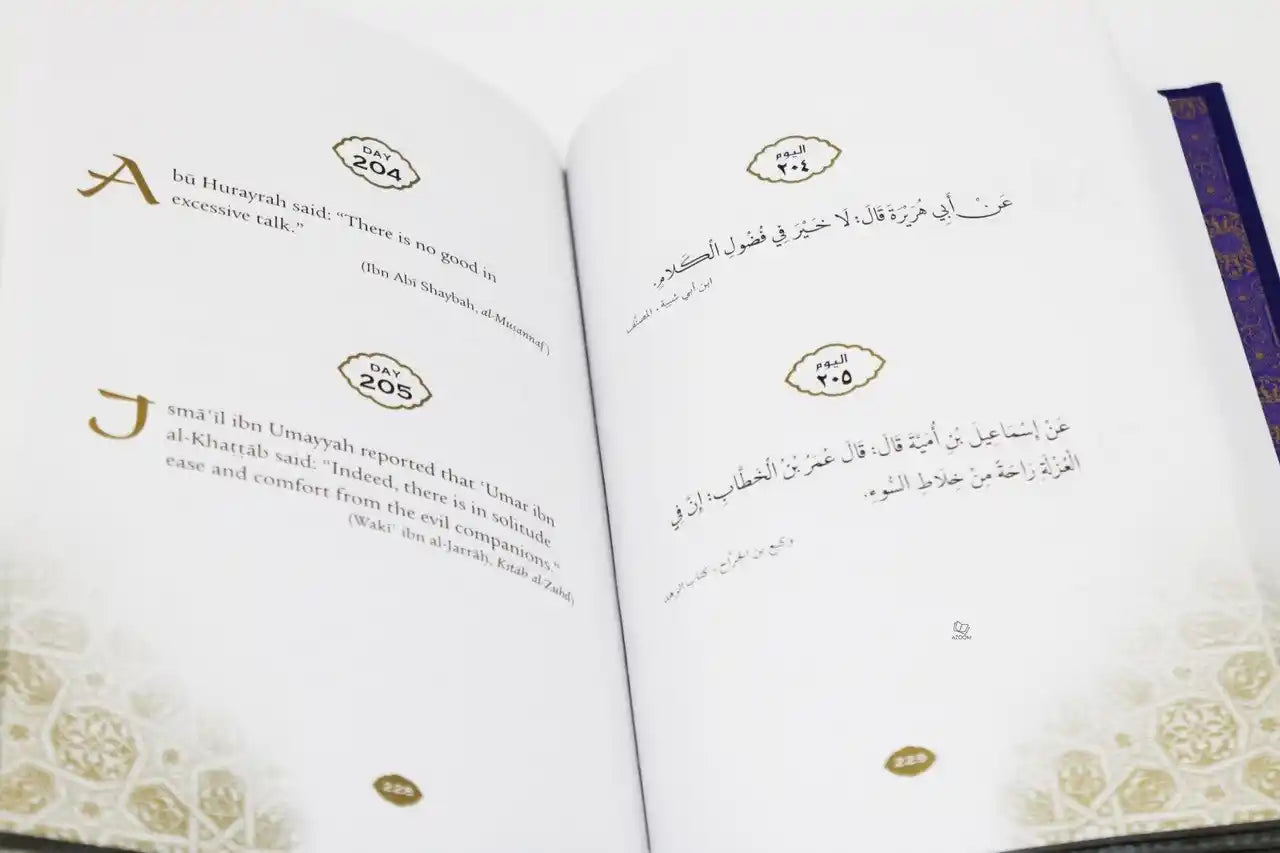 DAY
204
Abū Hurayrah said: “There is no good in
excessive talk.”
(Ibn Abī Shaybah, al-Muṣannaf)
DAY
205
Ismāʿīl ibn Umayyah reported that ʿUmar ibn
al-Khaṭṭāb said: “Indeed, there is in solitude
ease and comfort from the evil companions.”
(Wakīʿ ibn al-Jarrāḥ, Kitāb al-Zuhd)
228
اليوم
٢٠٤
عَنْ أَبِي هُرَيْرَةَ قَالَ: لَا خَيْرَ فِي فُضُولِ الْكَلَامِ.
ابن أبي شيبة، المصنَّف
اليوم
٢٠٥
عَنْ إِسْمَاعِيلَ بْنِ أُمَيَّةَ قَالَ: قَالَ عُمَرُ بْنُ الْخَطَّابِ: إِنَّ فِي
الْعُزْلَةِ رَاحَةً مِنْ خِلَاطِ السُّوءِ.
وكيع بن الجرّاح، كتاب الزهد
AZOOM
229